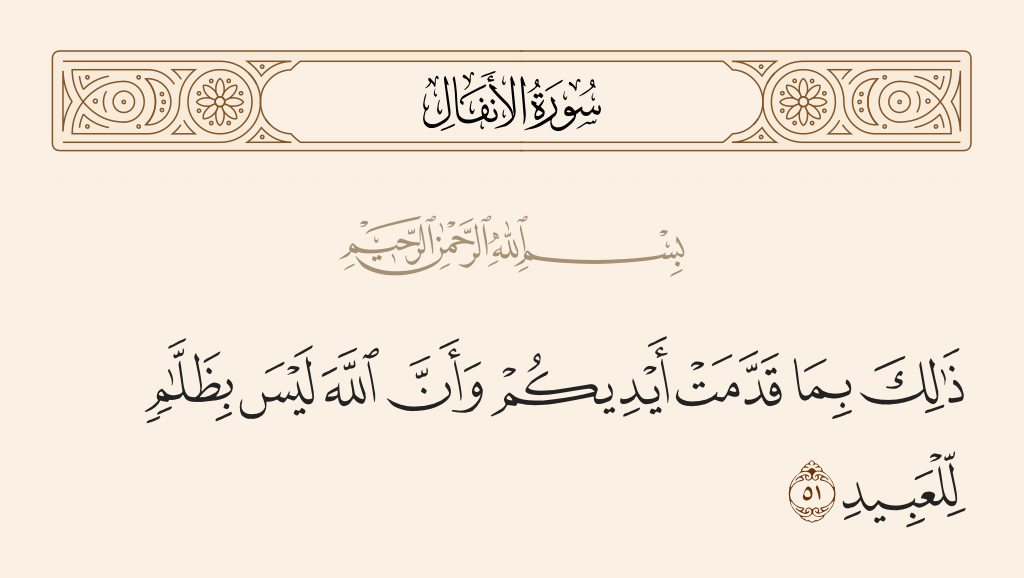 سُورَةُ الأَنفَالِ
بِسْمِ ٱللَّهِ ٱلرَّحْمَٰنِ ٱلرَّحِيمِ
ذَٰلِكَ بِمَا قَدَّمَتْ أَيْدِيكُمْ وَأَنَّ ٱللَّهَ لَيْسَ بِظَلَّٰمٍ
لِّلْعَبِيدِ ٥١